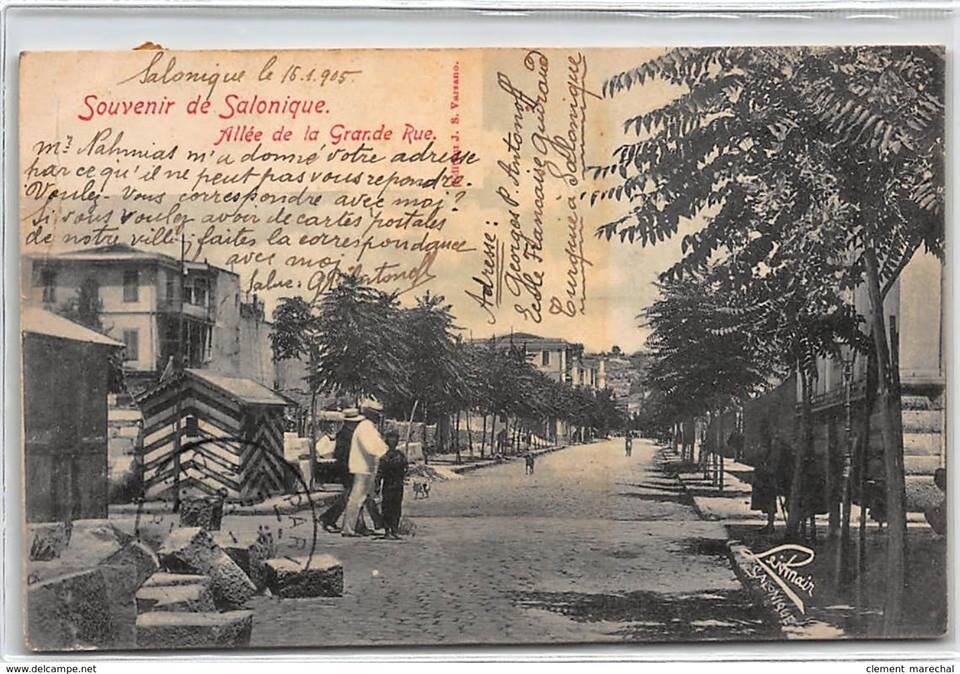 Salonique le 16.1.905
Souvenir de Salonique.
Allée de la Grande Rue.
Mr. Nahmias m'a donné votre adresse
par ce qu'il ne peut pas vous repondre.
Voulez-vous correspondre avec moi?
Si vous voulez avoir de cartes postales
de notre ville, faites la correspondance
avec moi
J. S. Varsano.
Adresse:
Georges P. Antonoff
Ecole Française Guiraud
Turquie à Salonique
SALONIQUE
clement marechal